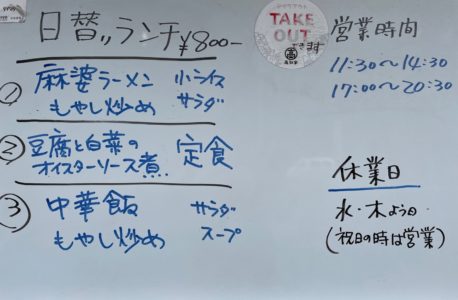 日替〃ランチ ¥800-
① 麻婆ラーメン 小ライス
もやし炒め サラダ
② 豆腐と白菜の 定食
オイスターソース煮
③ 中華飯 サラダ
もやし炒め スープ
TAKE
OUT
できます
営業時間
11:30〜14:30
17:00〜20:30
休業日
水・木よう日
(祝日の時は営業)